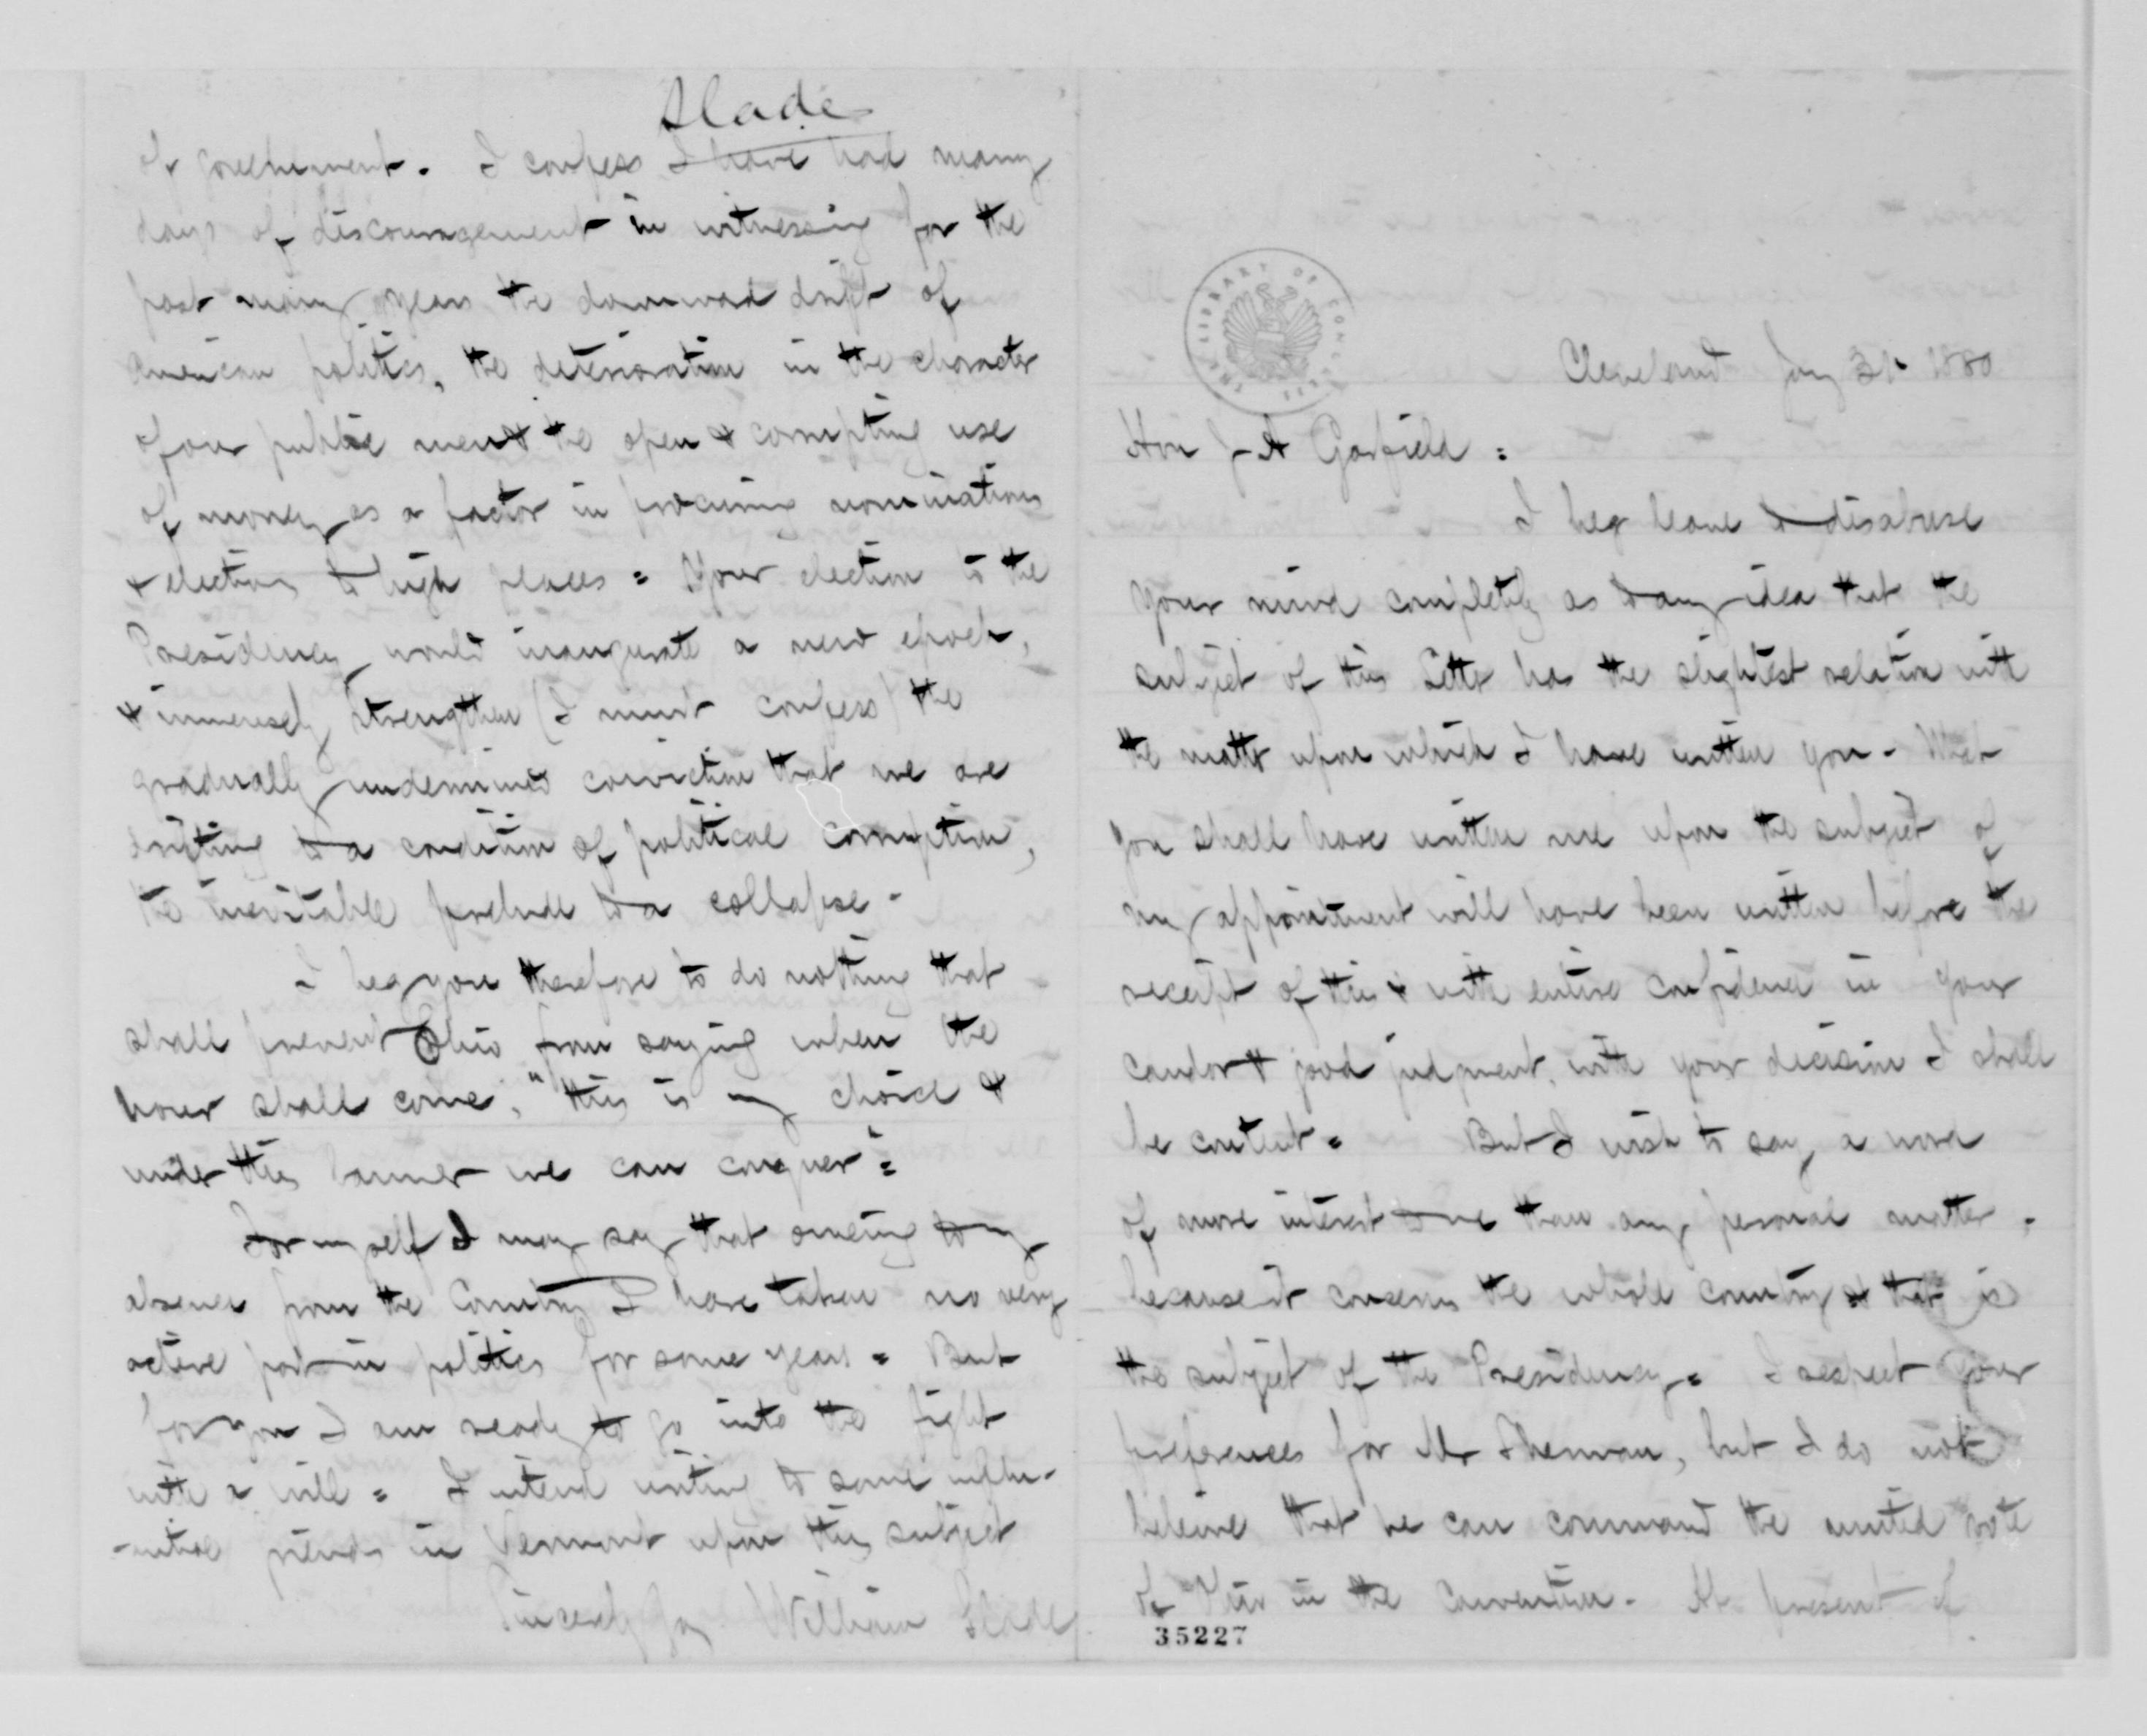 Slade
of government. I confess I have had many
days of discouragement in witnessing for the
past many years the downward drift of
American politics, the deterioration in the character
of our public men & the open & corrupting use
of money as a factor in procuring nominations
& elections to high places = Your election to the
Presidency would inaugurate a new epoch,
& immensely strengthen (I must confess) the
gradually undermined conviction that we are
drifting to a condition of political corruption,
the inevitable prelude to a collapse -
I beg you therefore to do nothing that
shall prevent Ohio from saying when the
hour shall come, "this is my choice &
under this banner we can conquer =
For myself I may say that owing to my
absence from the Country I have taken no very
active part in politics for some years = But
for you I am ready to go into the fight
with a will = I intend writing to some influ-
-ential friends in Vermont upon this subject
Sincerely Yrs William Slade
THE LIBRARY OF CONGRESS
Cleveland Jany 31 1880
Hon J A Garfield :
I beg leave to disabuse
your mind completely as to any idea that the
subject of this Letter has the slightest relation with
the matter upon which I have written you - What
you shall have written me upon the subject of
my appointment will have been written before the
receipt of this & with entire confidence in your
candor & good judgment, with your decision I shall
be content = But I wish to say a word
of more interest to me than any personal matter,
because it concerns the whole country & that is
the subject of the Presidency = I respect your
preferences for Mr Sherman, but I do not
believe that he can command the united vote
of Ohio in the Convention - At present I
35227